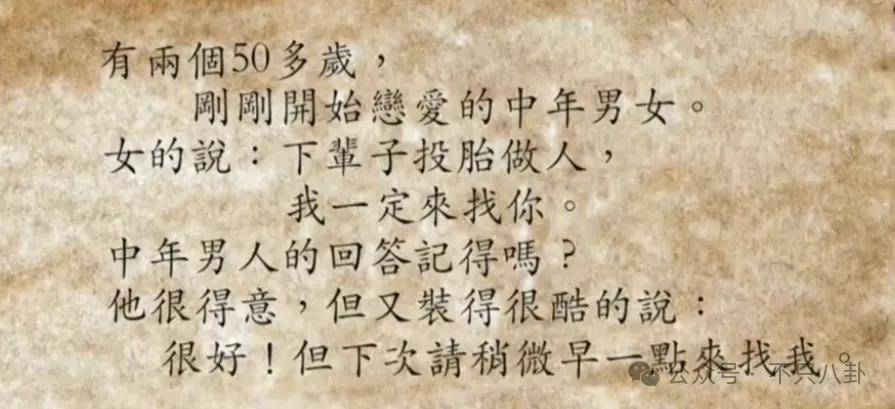 有兩個50多歲，
剛剛開始戀愛的中年男女。
女的說：下輩子投胎做人，
我一定來找你。
中年男人的回答記得嗎？
他很得意，但又裝得很酷的說：
很好！但下次請稍微早一點來找我。
公众号 不只八卦